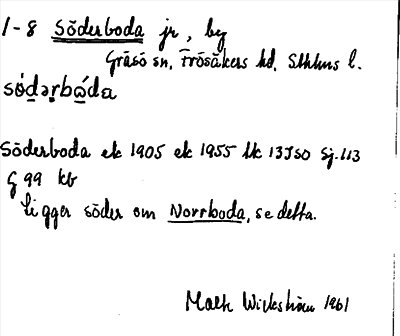 1-8 Söderboda jr, by
Gräsö sn, Frösåkers hd, Sthlms l.
Söderboda ek 1905 ek 1955 tk 13J SO Sj. 113
G 99 kb
ligger söder om Norrboda, se detta.
1961